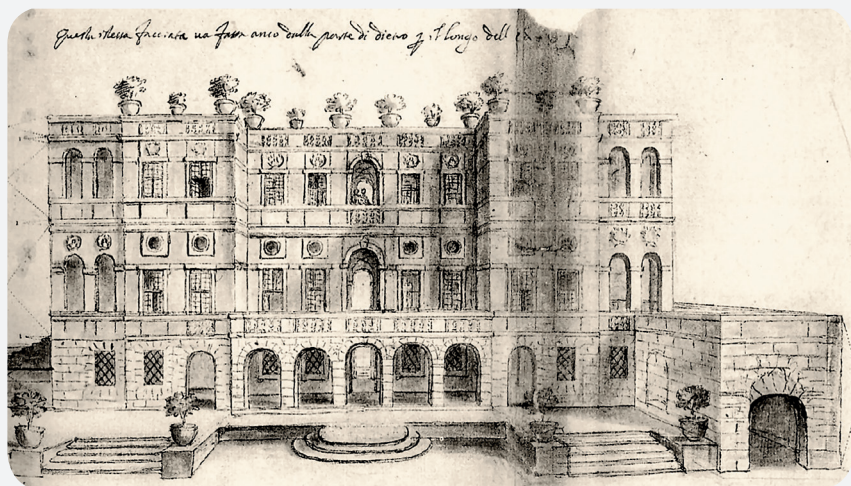 Questa istessa facciata ua fatta anco dalla parte di dietro ꝑ il longo dell